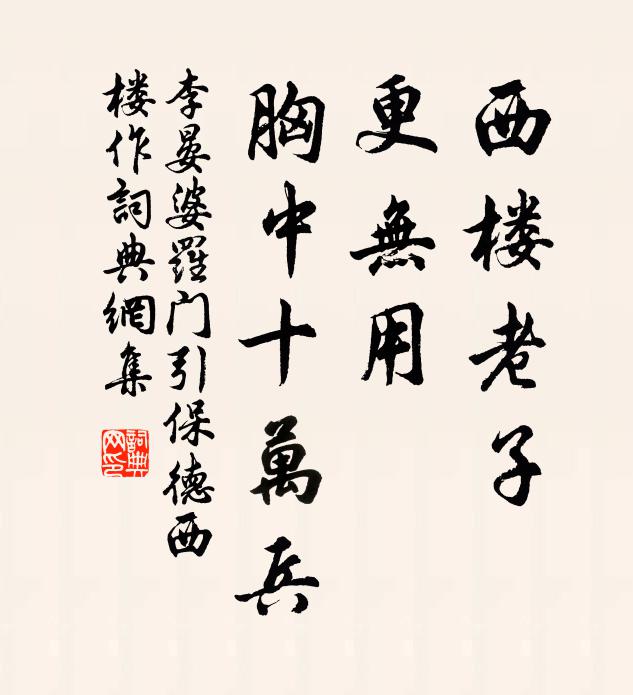 西楼老子
更無用
胸中十萬兵
李晏婆羅门引保德西
楼作詞典網集
詞典网印